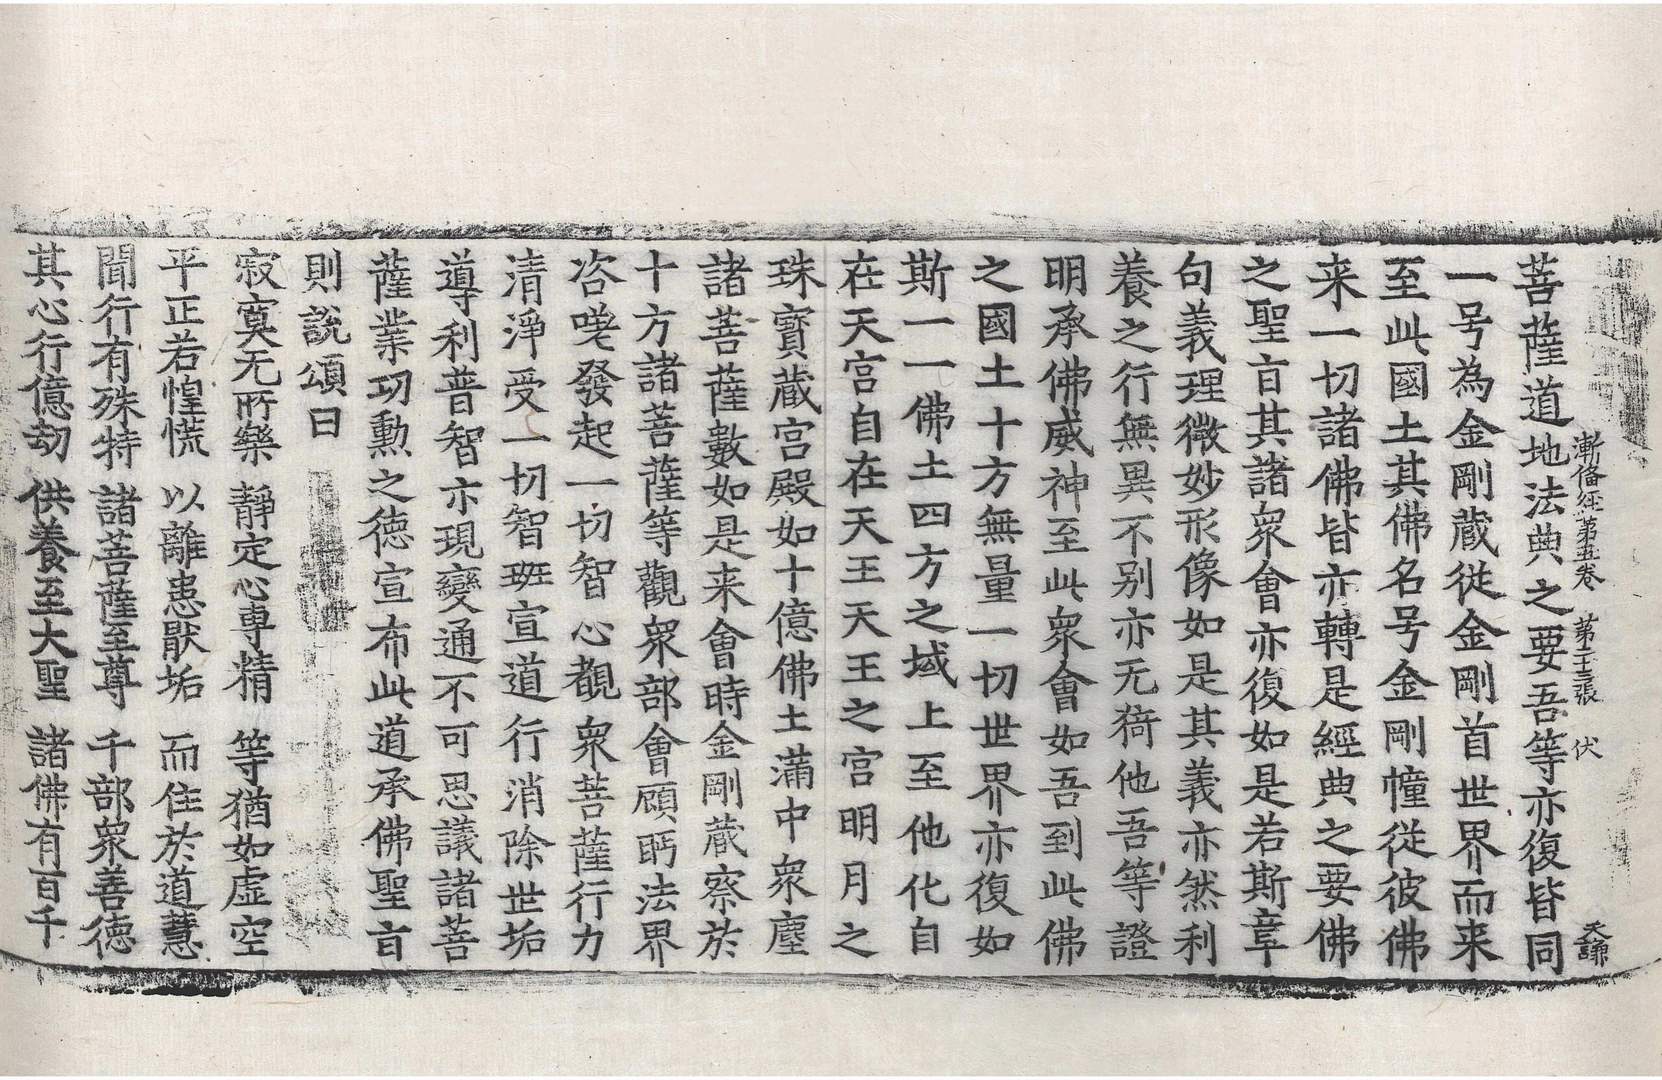 漸備經第五卷　第二十三張　伏　天謙
菩薩道地法典之要吾等亦復皆同
一号為金剛蔵従金剛首世界而来
至此國土其佛名号金剛幢従彼佛
来一切諸佛皆亦轉是經典之要佛
之聖旨其諸衆會亦復如是若斯章
句義理微妙形像如是其義亦然利
養之行無異不别亦无猗他吾等證
明承佛威神至此衆會如吾到此佛
之國土十方無量一切世界亦復如
斯一一佛土四方之域上至他化自
在天宫自在天王天王之宫明月之
珠寳蔵宫殿如十億佛土滿中衆塵
諸菩薩數如是来會時金剛蔵察於
十方諸菩薩等觀衆部會顧眄法界
咨嗟發起一切智心觀衆菩薩行力
清淨受一切智班宣道行消除世垢
導利普智亦現變通不可思議諸菩
薩業功勲之徳宣布此道承佛聖旨
則說頌曰
寂寞无所樂　靜定心專精　等猶如虚空
平正若惶慌　以離恚猒垢　而住於道慧
聞行有殊特　諸菩薩至尊　千部衆善徳
其心行億劫　供養至大聖　諸佛有百千